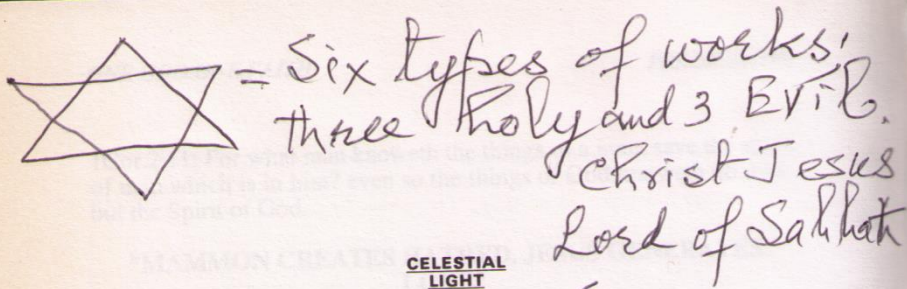 = Six types of works;
three Holy and 3 Evil.
Christ Jesus
Lord of Sabbath
CELESTIAL
LIGHT